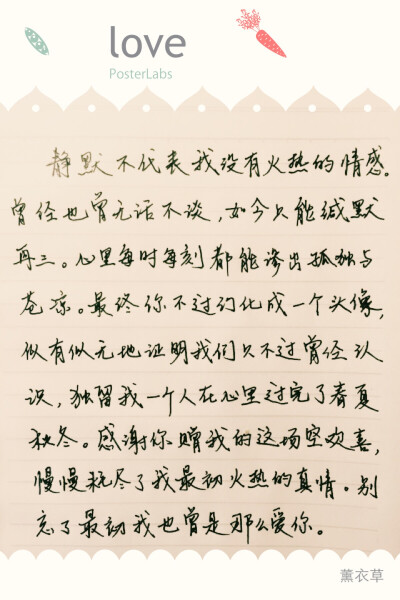 love
PosterLabs
静默不代表我没有火热的情感。
曾经也曾无话不谈，如今只能缄默
再三。心里每时每刻都能渗出孤独与
苍凉。最终你不过幻化成一个头像，
似有似无地证明我们只不过曾经认
识，独留我一个人在心里过完了春夏
秋冬。感谢你赠我的这场空欢喜，
慢慢耗尽了我最初火热的真情。别
忘了最初我也曾是那么爱你。
薰衣草